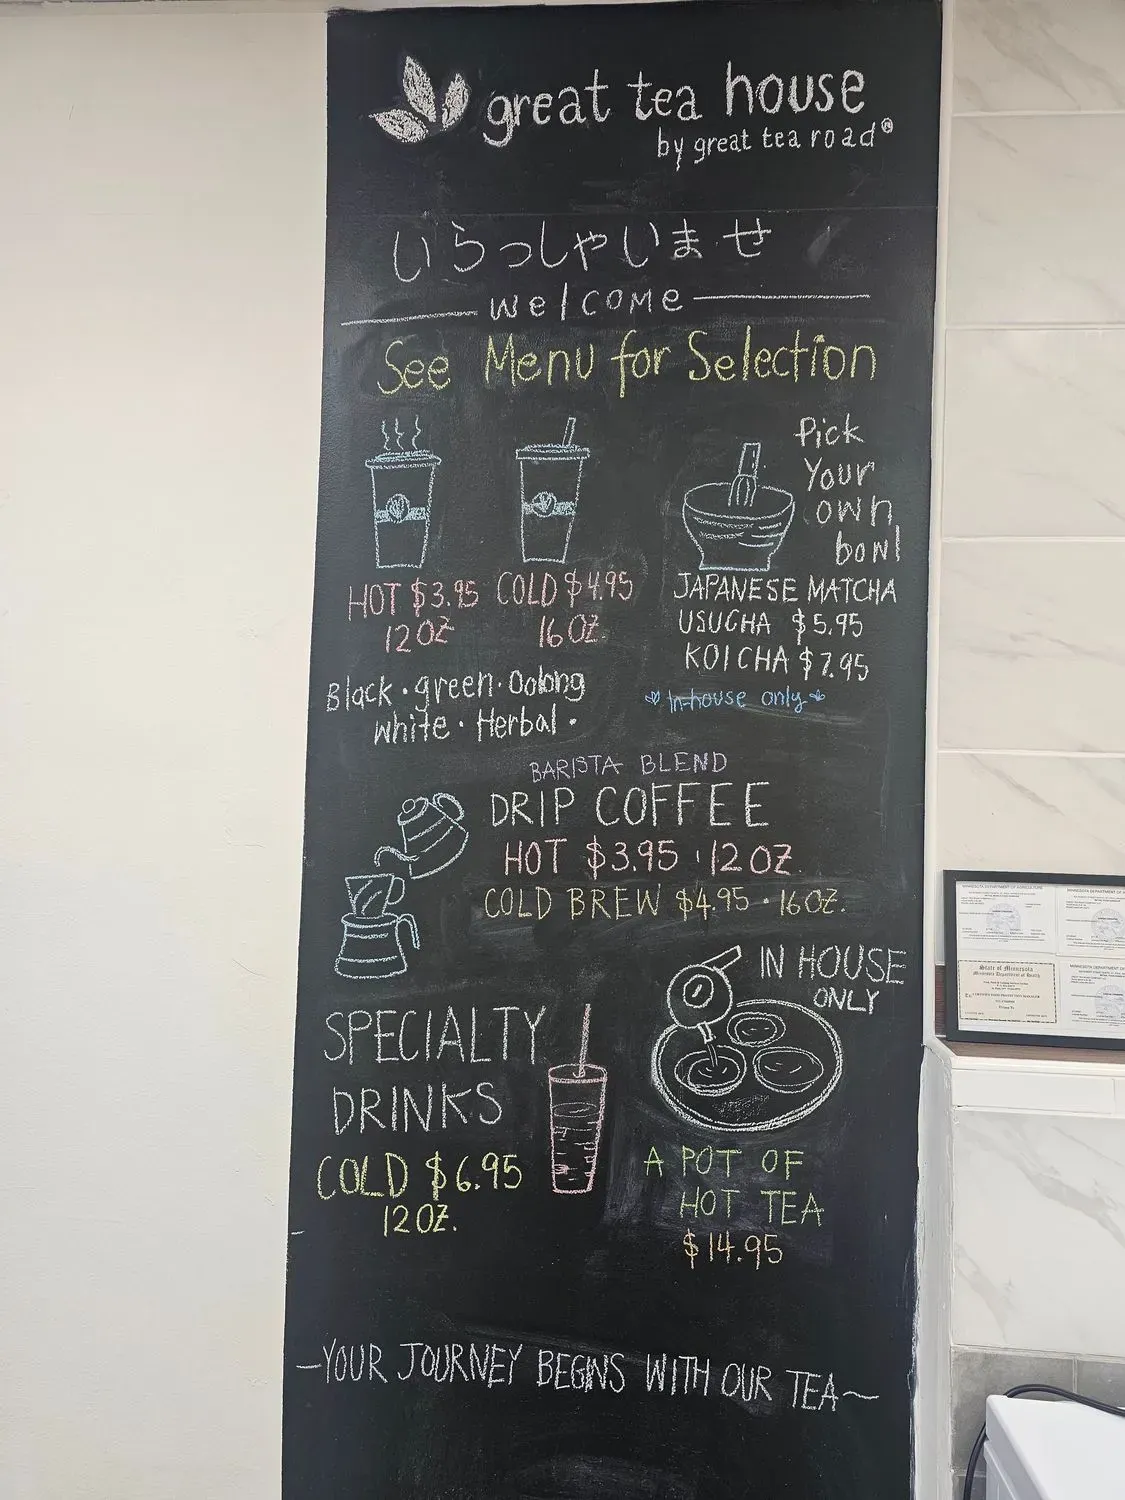 great tea house
by great tea road®
いらっしゃいませ
welcome
See Menu for Selection
Pick
Your
own
bowl
HOT $3.95
12 OZ
COLD $4.95
16 OZ.
Black · green · Oolong
white · Herbal ·
JAPANESE MATCHA
USUCHA $5.95
KOICHA $7.95
In-house only
BARISTA BLEND
DRIP COFFEE
HOT $3.95 · 12 OZ.
COLD BREW $4.95 · 16 OZ.
IN HOUSE
ONLY
SPECIALTY
DRINKS
COLD $6.95
12 OZ.
A POT OF
HOT TEA
$14.95
~YOUR JOURNEY BEGINS WITH OUR TEA~
MINNESOTA DEPARTMENT OF AGRICULTURE
State of Minnesota
Minnesota Department of Health